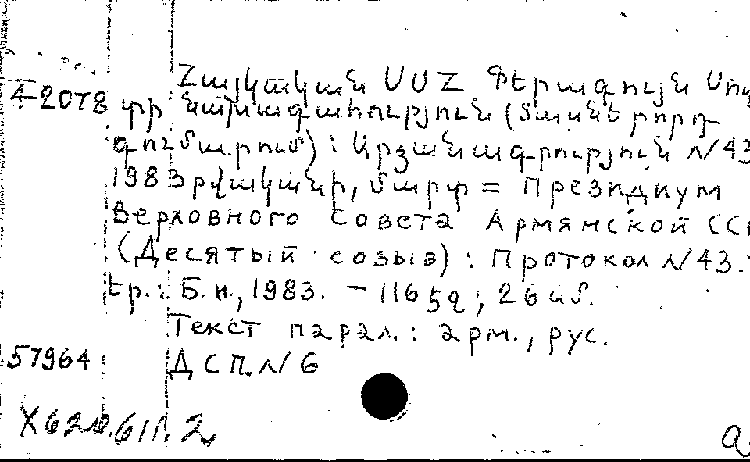 Հայկական ՍՍՀ Գերագույն Սով
4-2078 տր նախագահություն (տասներորդ
գումարում): Արձանագրություն N/43
1983 թվականի, մարտ = Президиум
Верховного Совета Армянской ССР
(Десятый созыв): Протокол N/43.
Եր.: Б.и., 1983. - 116 էջ; 26 սմ.
Текст парал.: арм., рус.
57964 ДСП. N/ 6
X620.611.2